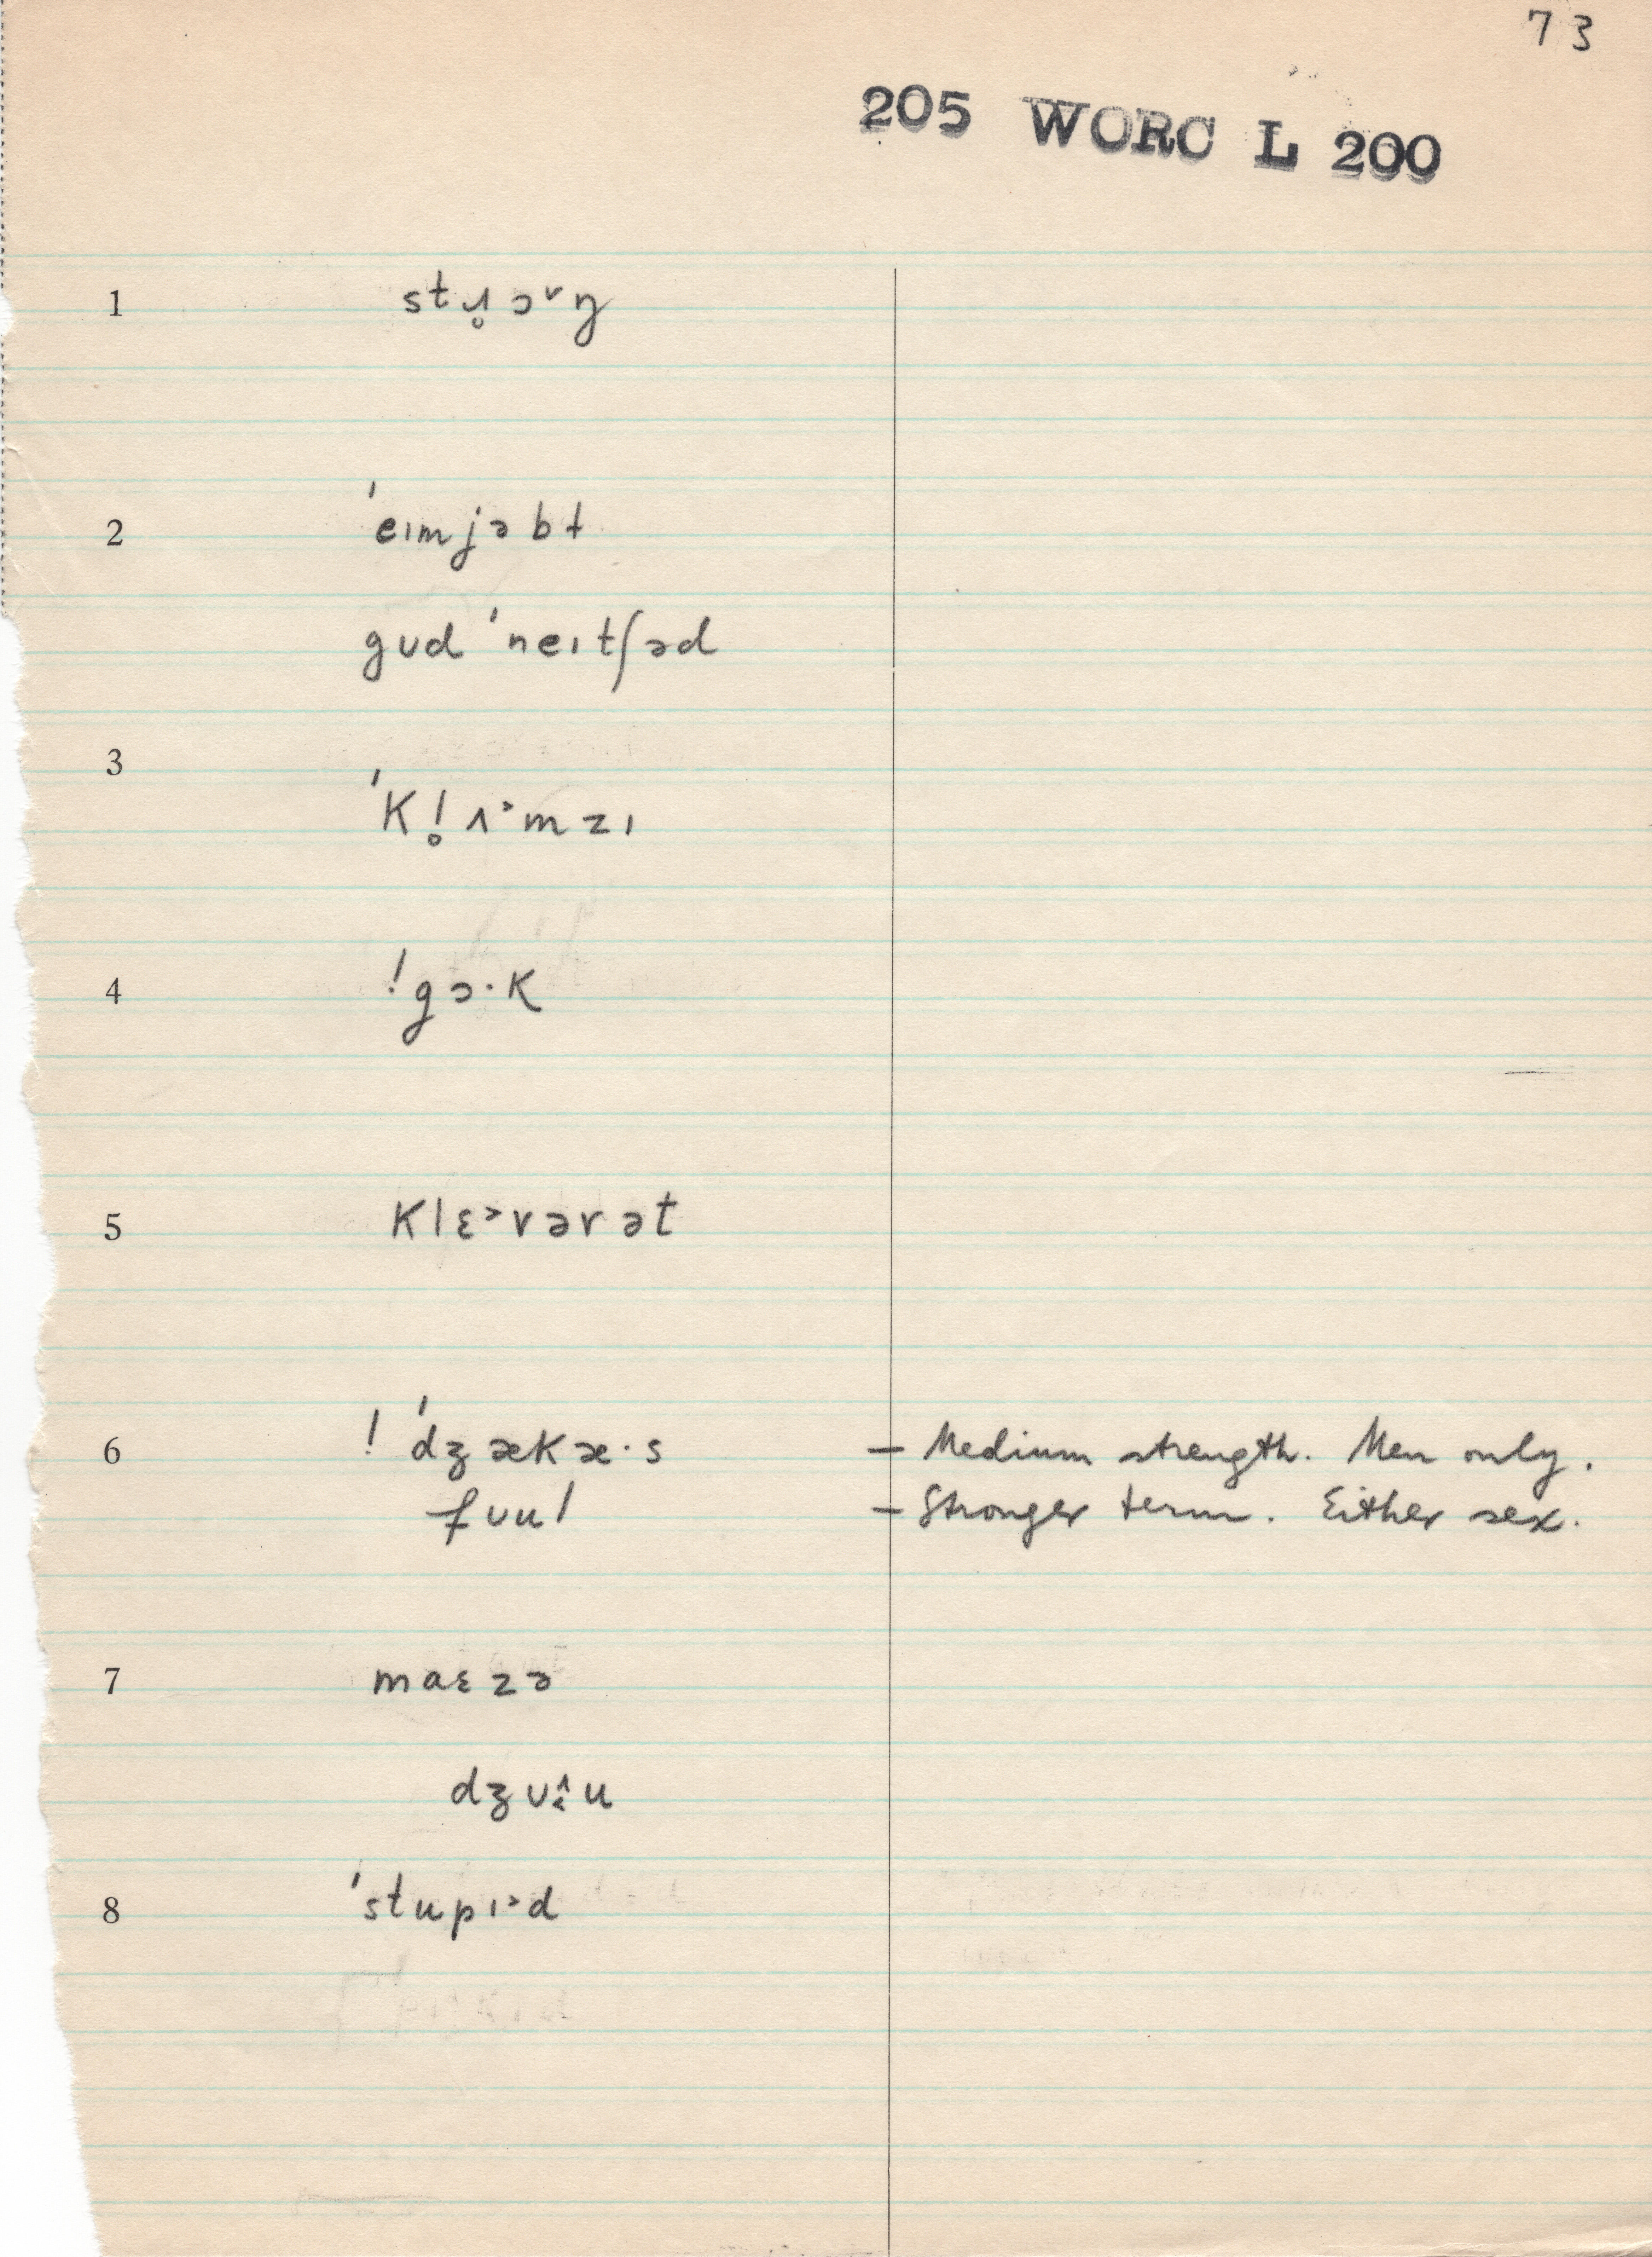 73
205 WORC L 200
1 stɹ̥ɔ˅ŋ
2 ˈeɪmjəbɫ
gʊd ˈneɪtʃəd
3 ˈkl̥ʌ˃mzɪ
4 !gɔ·k
5 klɛ˃vərət
6 ! ˈdʒækæ·s – Medium strength. Men only.
fʊul – Stronger term. Either sex.
7 maɛzə
dʒʊ̝̂u
8 ˈstupɪ˃d